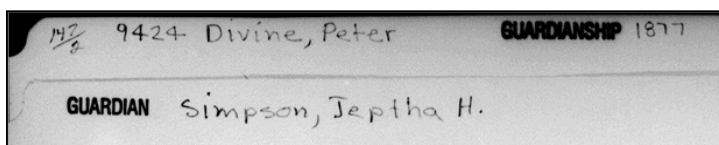 147/2 9424 Divine, Peter GUARDIANSHIP 1877
GUARDIAN Simpson, Jeptha H.